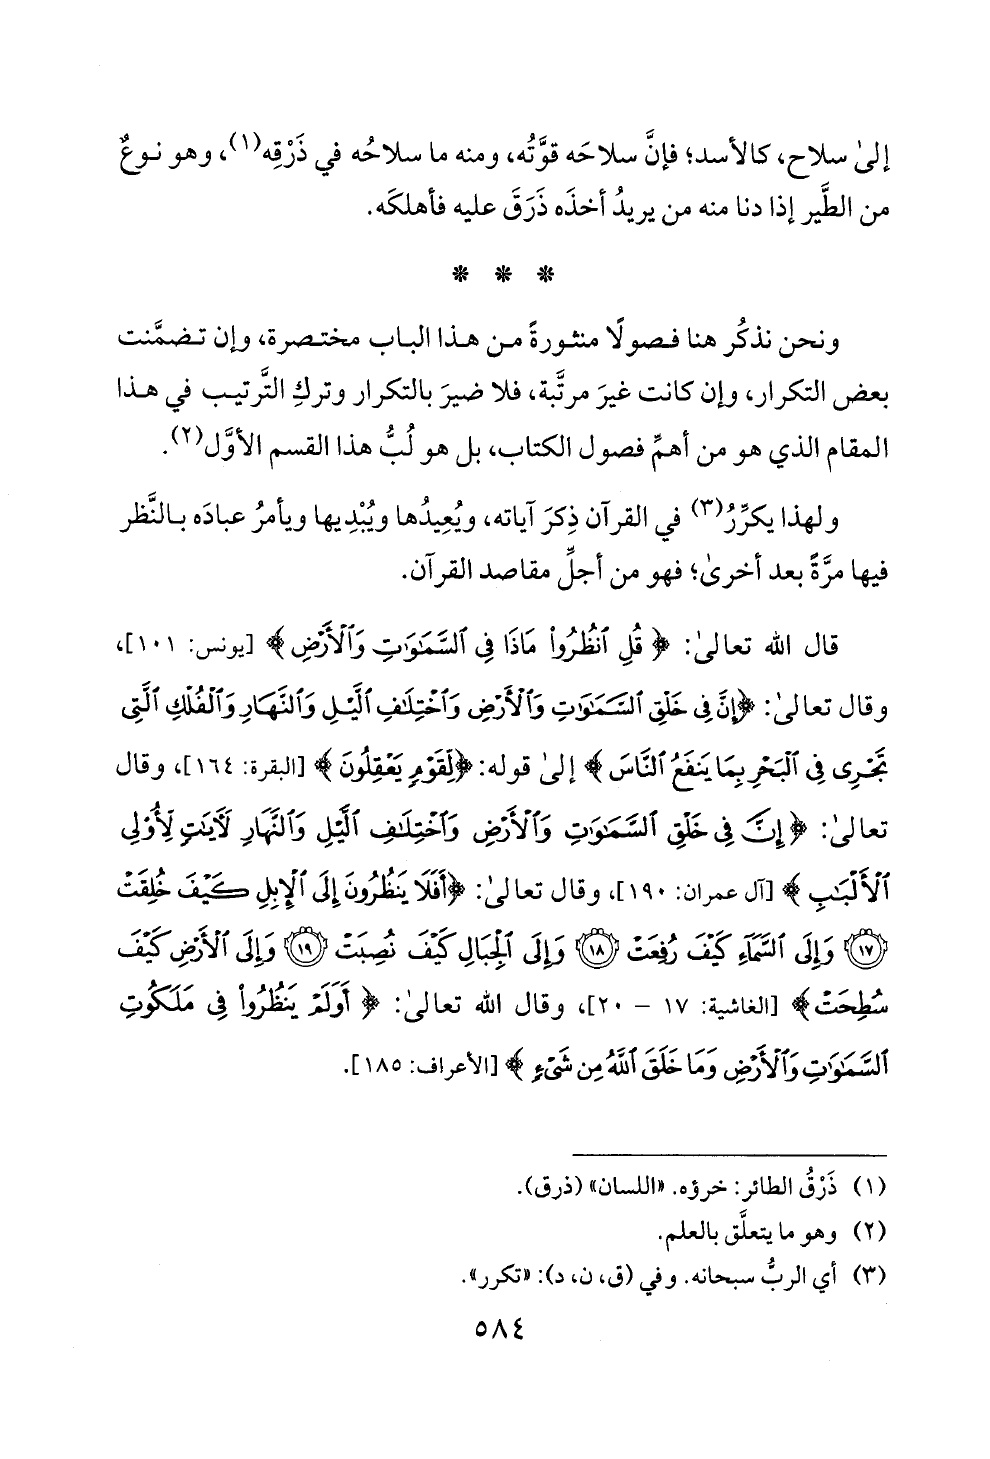 إلىٰ سلاح، كالأسد؛ فإنَّ سلاحَه قوَّتُه، ومنه ما سلاحُه في ذَرْقِه(١)، وهو نوعٌ
من الطَّير إذا دنا منه من يريدُ أخذَه ذَرَقَ عليه فأهلكَه.
* * *
ونحن نذكُر هنا فصولًا منثورةً من هذا الباب مختصرة، وإن تضمَّنت
بعض التكرار، وإن كانت غيرَ مرتَّبة، فلا ضيرَ بالتكرار وتركِ التَّرتيب في هذا
المقام الذي هو من أهمِّ فصول الكتاب، بل هو لُبُّ هذا القسم الأوَّل(٢).
ولهذا يكرِّرُ(٣) في القرآن ذِكرَ آياته، ويُعِيدُها ويُبْدِيها ويأمرُ عبادَه بالنَّظر
فيها مرَّةً بعد أخرىٰ؛ فهو من أجلِّ مقاصد القرآن.
قال الله تعالىٰ: ﴿ قُلِ ٱنظُرُوا۟ مَاذَا فِى ٱلسَّمَـٰوَٰتِ وَٱلْأَرْضِ ﴾ [يونس: ١٠١]،
وقال تعالىٰ: ﴿إِنَّ فِى خَلْقِ ٱلسَّمَـٰوَٰتِ وَٱلْأَرْضِ وَٱخْتِلَـٰفِ ٱلَّيْلِ وَٱلنَّهَارِ وَٱلْفُلْكِ ٱلَّتِى
تَجْرِى فِى ٱلْبَحْرِ بِمَا يَنفَعُ ٱلنَّاسَ ﴾ إلىٰ قوله: ﴿لِقَوْمٍ يَعْقِلُونَ ﴾ [البقرة: ١٦٤]، وقال
تعالىٰ: ﴿ إِنَّ فِى خَلْقِ ٱلسَّمَـٰوَٰتِ وَٱلْأَرْضِ وَٱخْتِلَـٰفِ ٱلَّيْلِ وَٱلنَّهَارِ لَـَٔايَـٰتٍ لِّأُو۟لِى
ٱلْأَلْبَـٰبِ ﴾ [آل عمران: ١٩٠]، وقال تعالىٰ: ﴿أَفَلَا يَنظُرُونَ إِلَى ٱلْإِبِلِ كَيْفَ خُلِقَتْ
﴿١٧﴾ وَإِلَى ٱلسَّمَآءِ كَيْفَ رُفِعَتْ ﴿١٨﴾ وَإِلَى ٱلْجِبَالِ كَيْفَ نُصِبَتْ ﴿١٩﴾ وَإِلَى ٱلْأَرْضِ كَيْفَ
سُطِحَتْ﴾ [الغاشية: ١٧ - ٢٠]، وقال الله تعالىٰ: ﴿ أَوَلَمْ يَنظُرُوا۟ فِى مَلَكُوتِ
ٱلسَّمَـٰوَٰتِ وَٱلْأَرْضِ وَمَا خَلَقَ ٱللَّهُ مِن شَىْءٍ ﴾ [الأعراف: ١٨٥].
(١) ذَرْقُ الطائر: خرؤه. «اللسان» (ذرق).
(٢) وهو ما يتعلَّق بالعلم.
(٣) أي الربُّ سبحانه. وفي (ق، ن، د): «تكرر».
٥٨٤